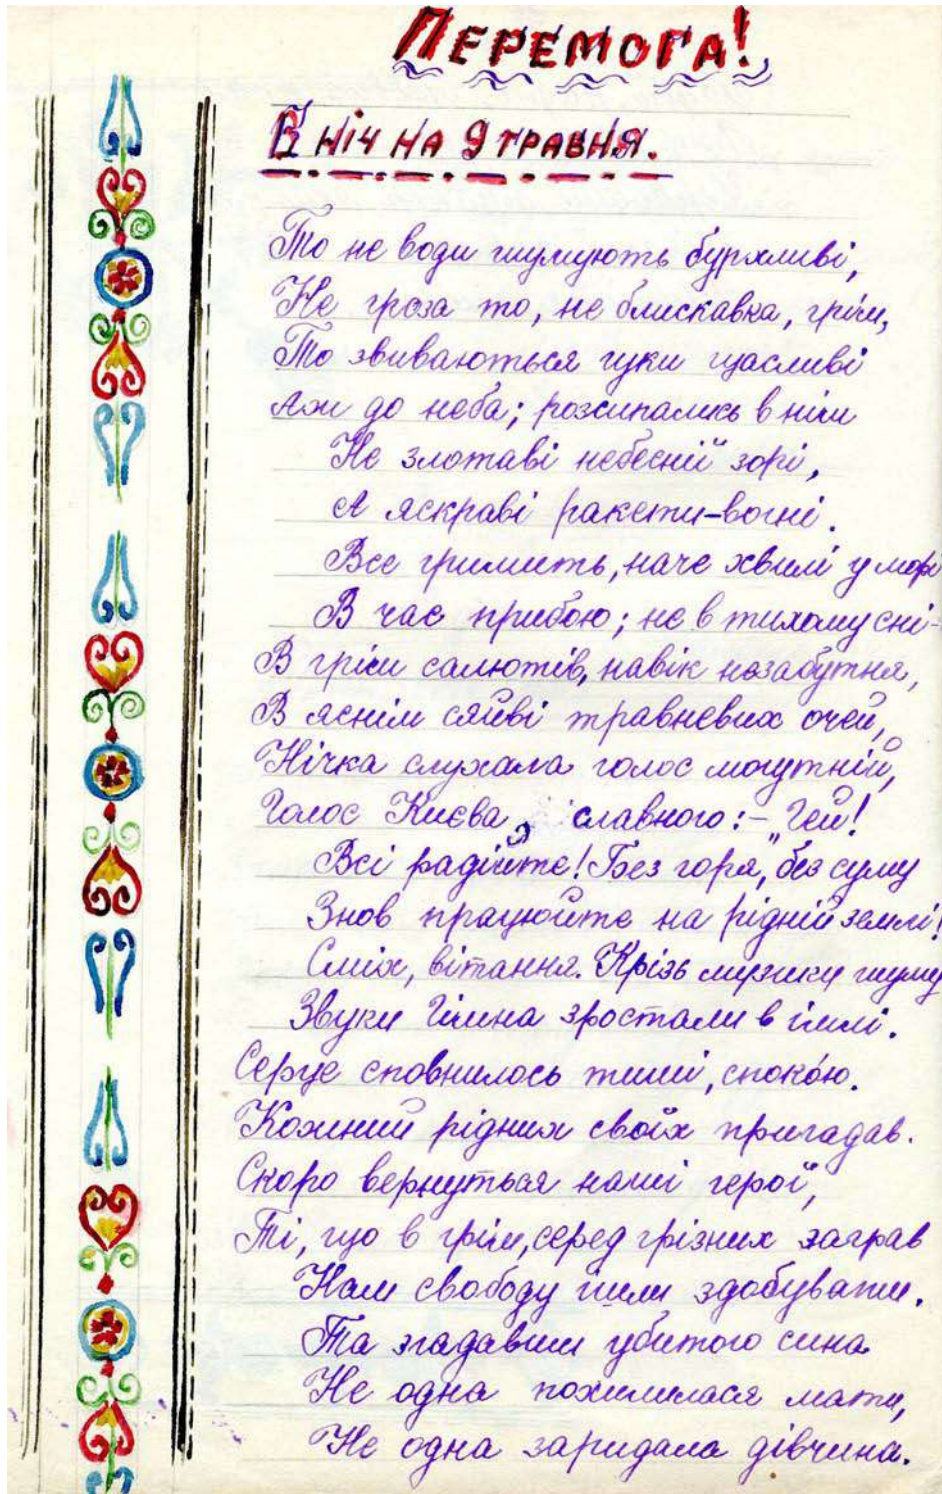 Перемога!
В ніч на 9 травня.
То не води шумують бурхливі,
Не гроза то, не блискавка, грім,
То звиваються гуки щасливі
Аж до неба; розсипались в нім
Не злотаві небеснії зорі,
А яскраві ракети-вогні.
Все гримить, наче хвилі у морі
В час прибою; не в тихому сні-
В грім салютів, навік незабутня,
В яснім сяйві травневих очей,
Нічка слухала голос могутній,
Голос Києва славного: - „Гей!
Всі радійте! Без горя, без суму
Знов працюйте на рідній землі!
Сміх, вітання. Крізь музики шуму
Звуки Гімна зростали в імлі.
Серце сповнилось тиші, спокою.
Кожний рідних своїх пригадав.
Скоро вернуться наші герої,
Ті, що в грім, серед грізних заграв
Нам свободу ішли здобувати.
Та згадавши убитого сина
Не одна похилилася мати,
Не одна заридала дівчина.